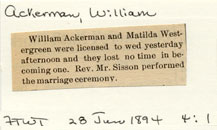 Ackerman, William
William Ackerman and Matilda West-
ergreen were licensed to wed yesterday
afternoon and they lost no time in be-
coming one. Rev. Mr. Sisson performed
the marriage ceremony.
FTWT 23 June 1894 4:1